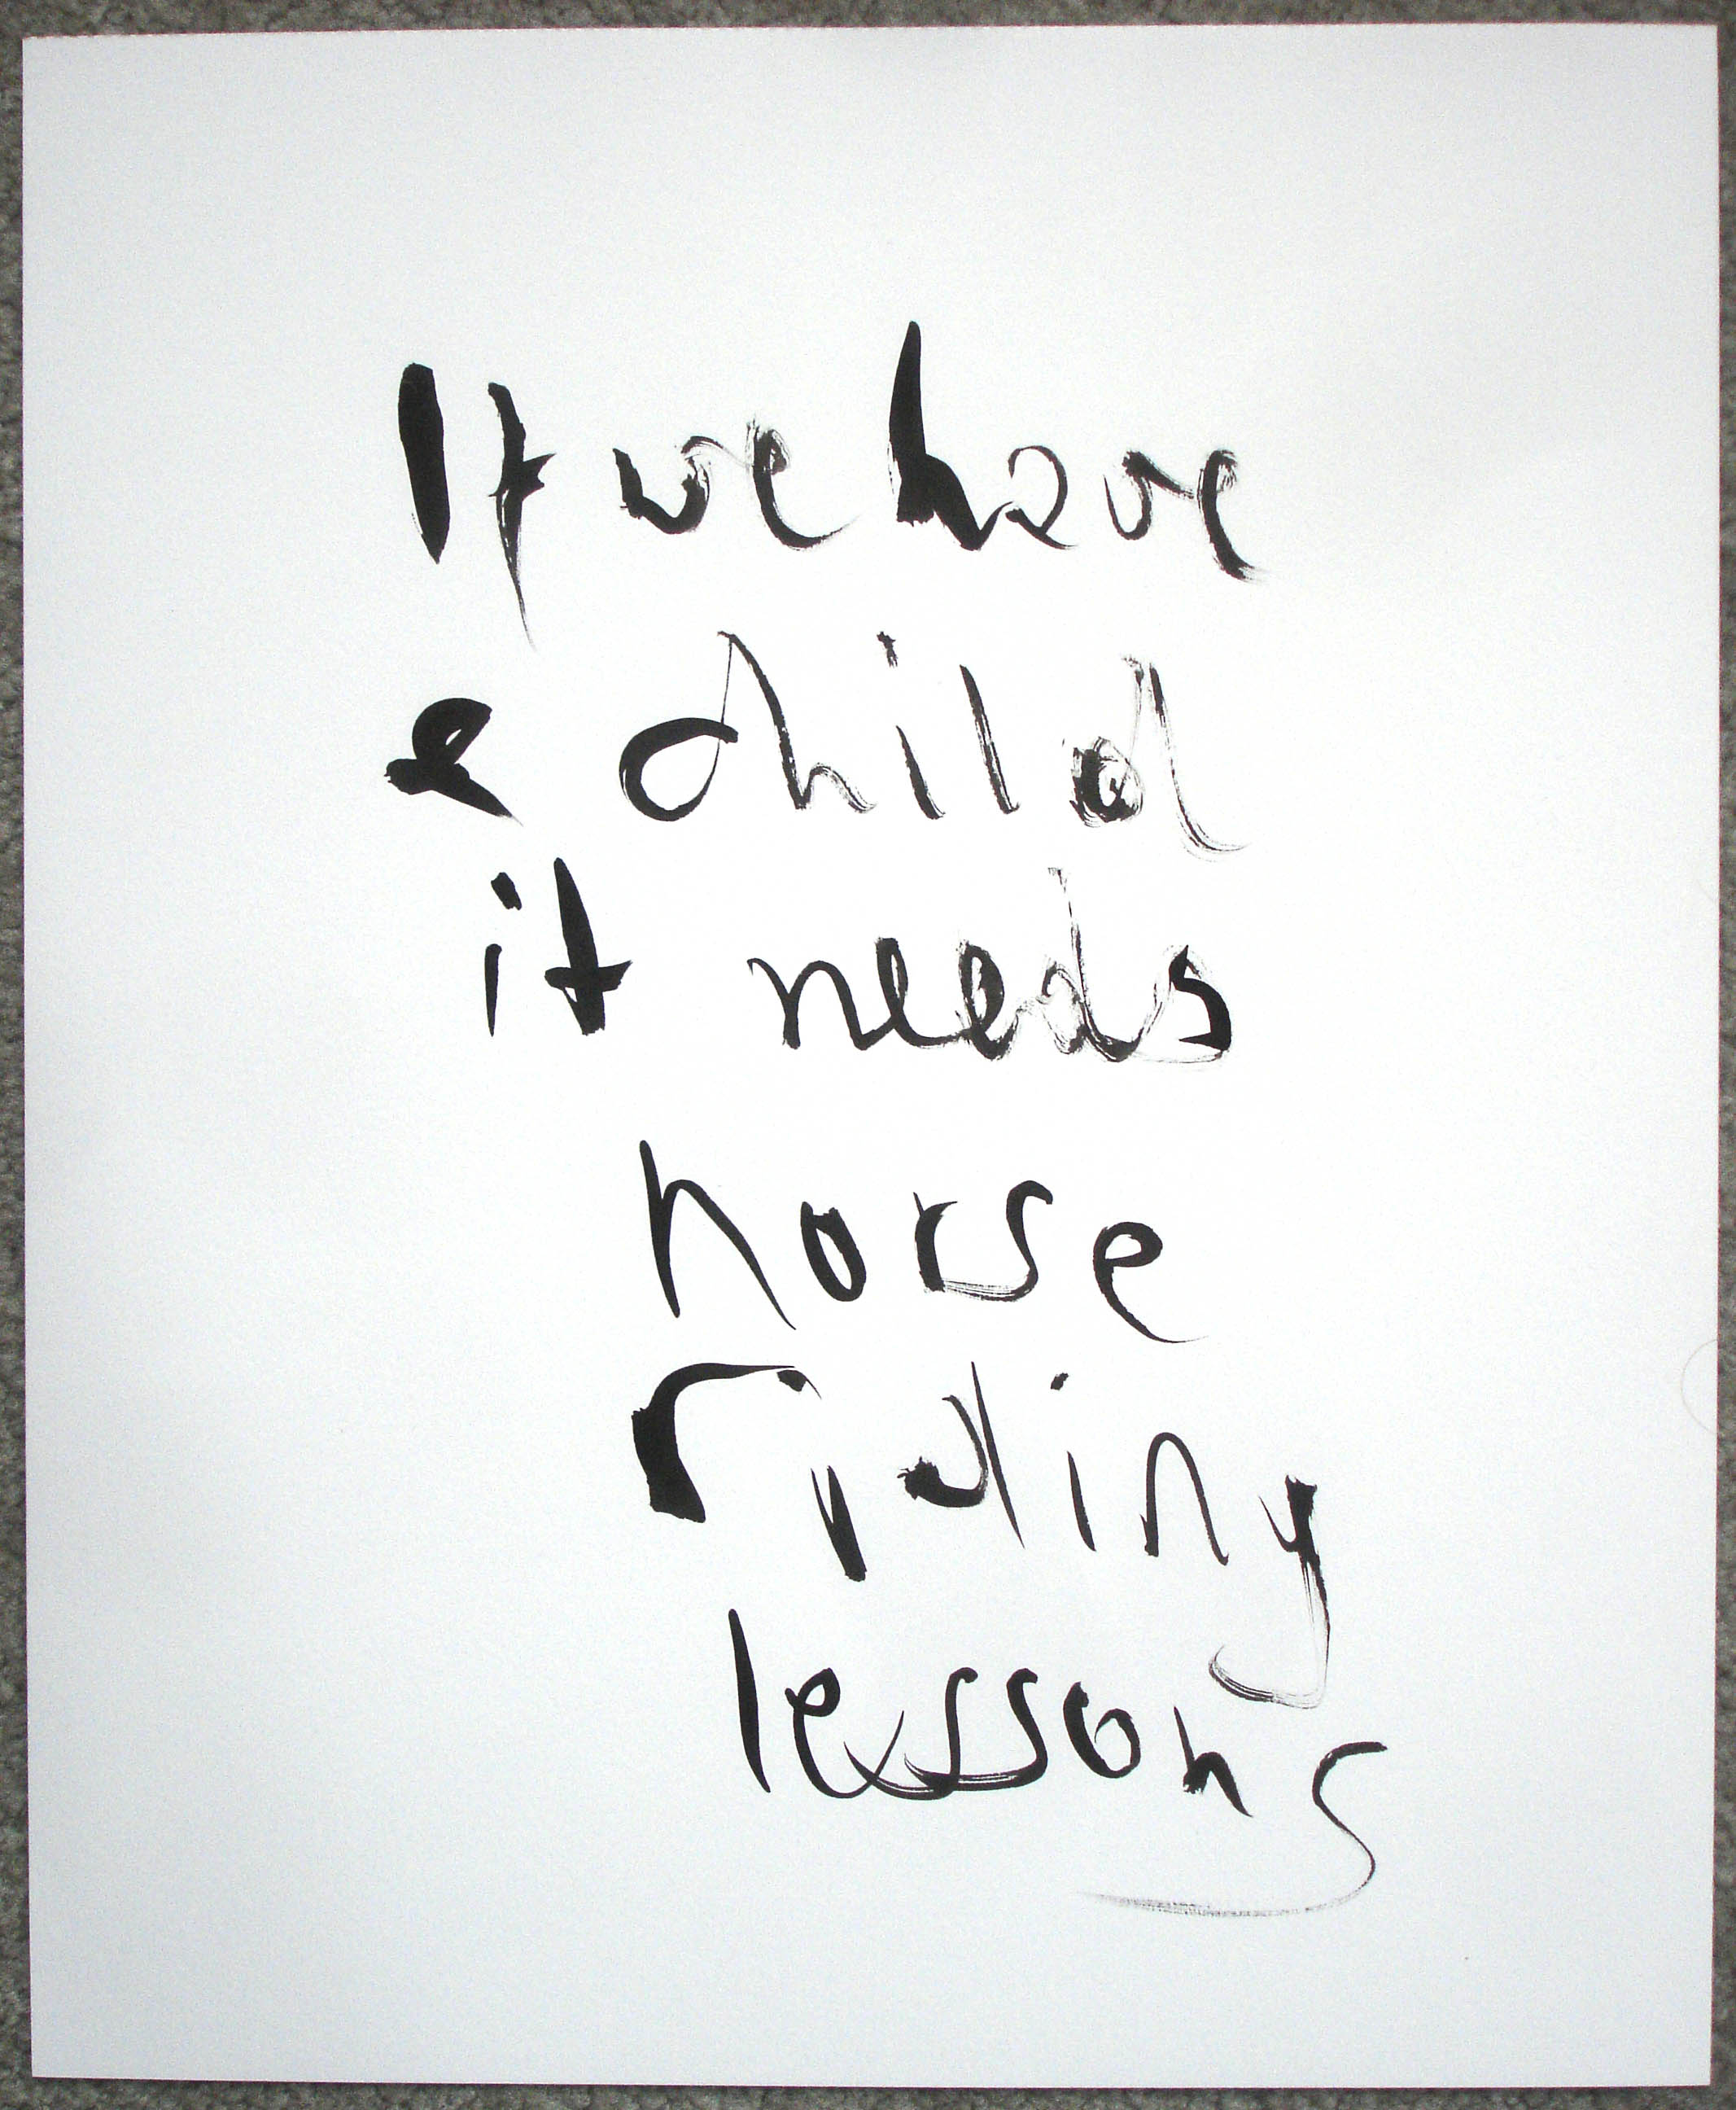 If we have
a child
it needs
horse
riding
lessons